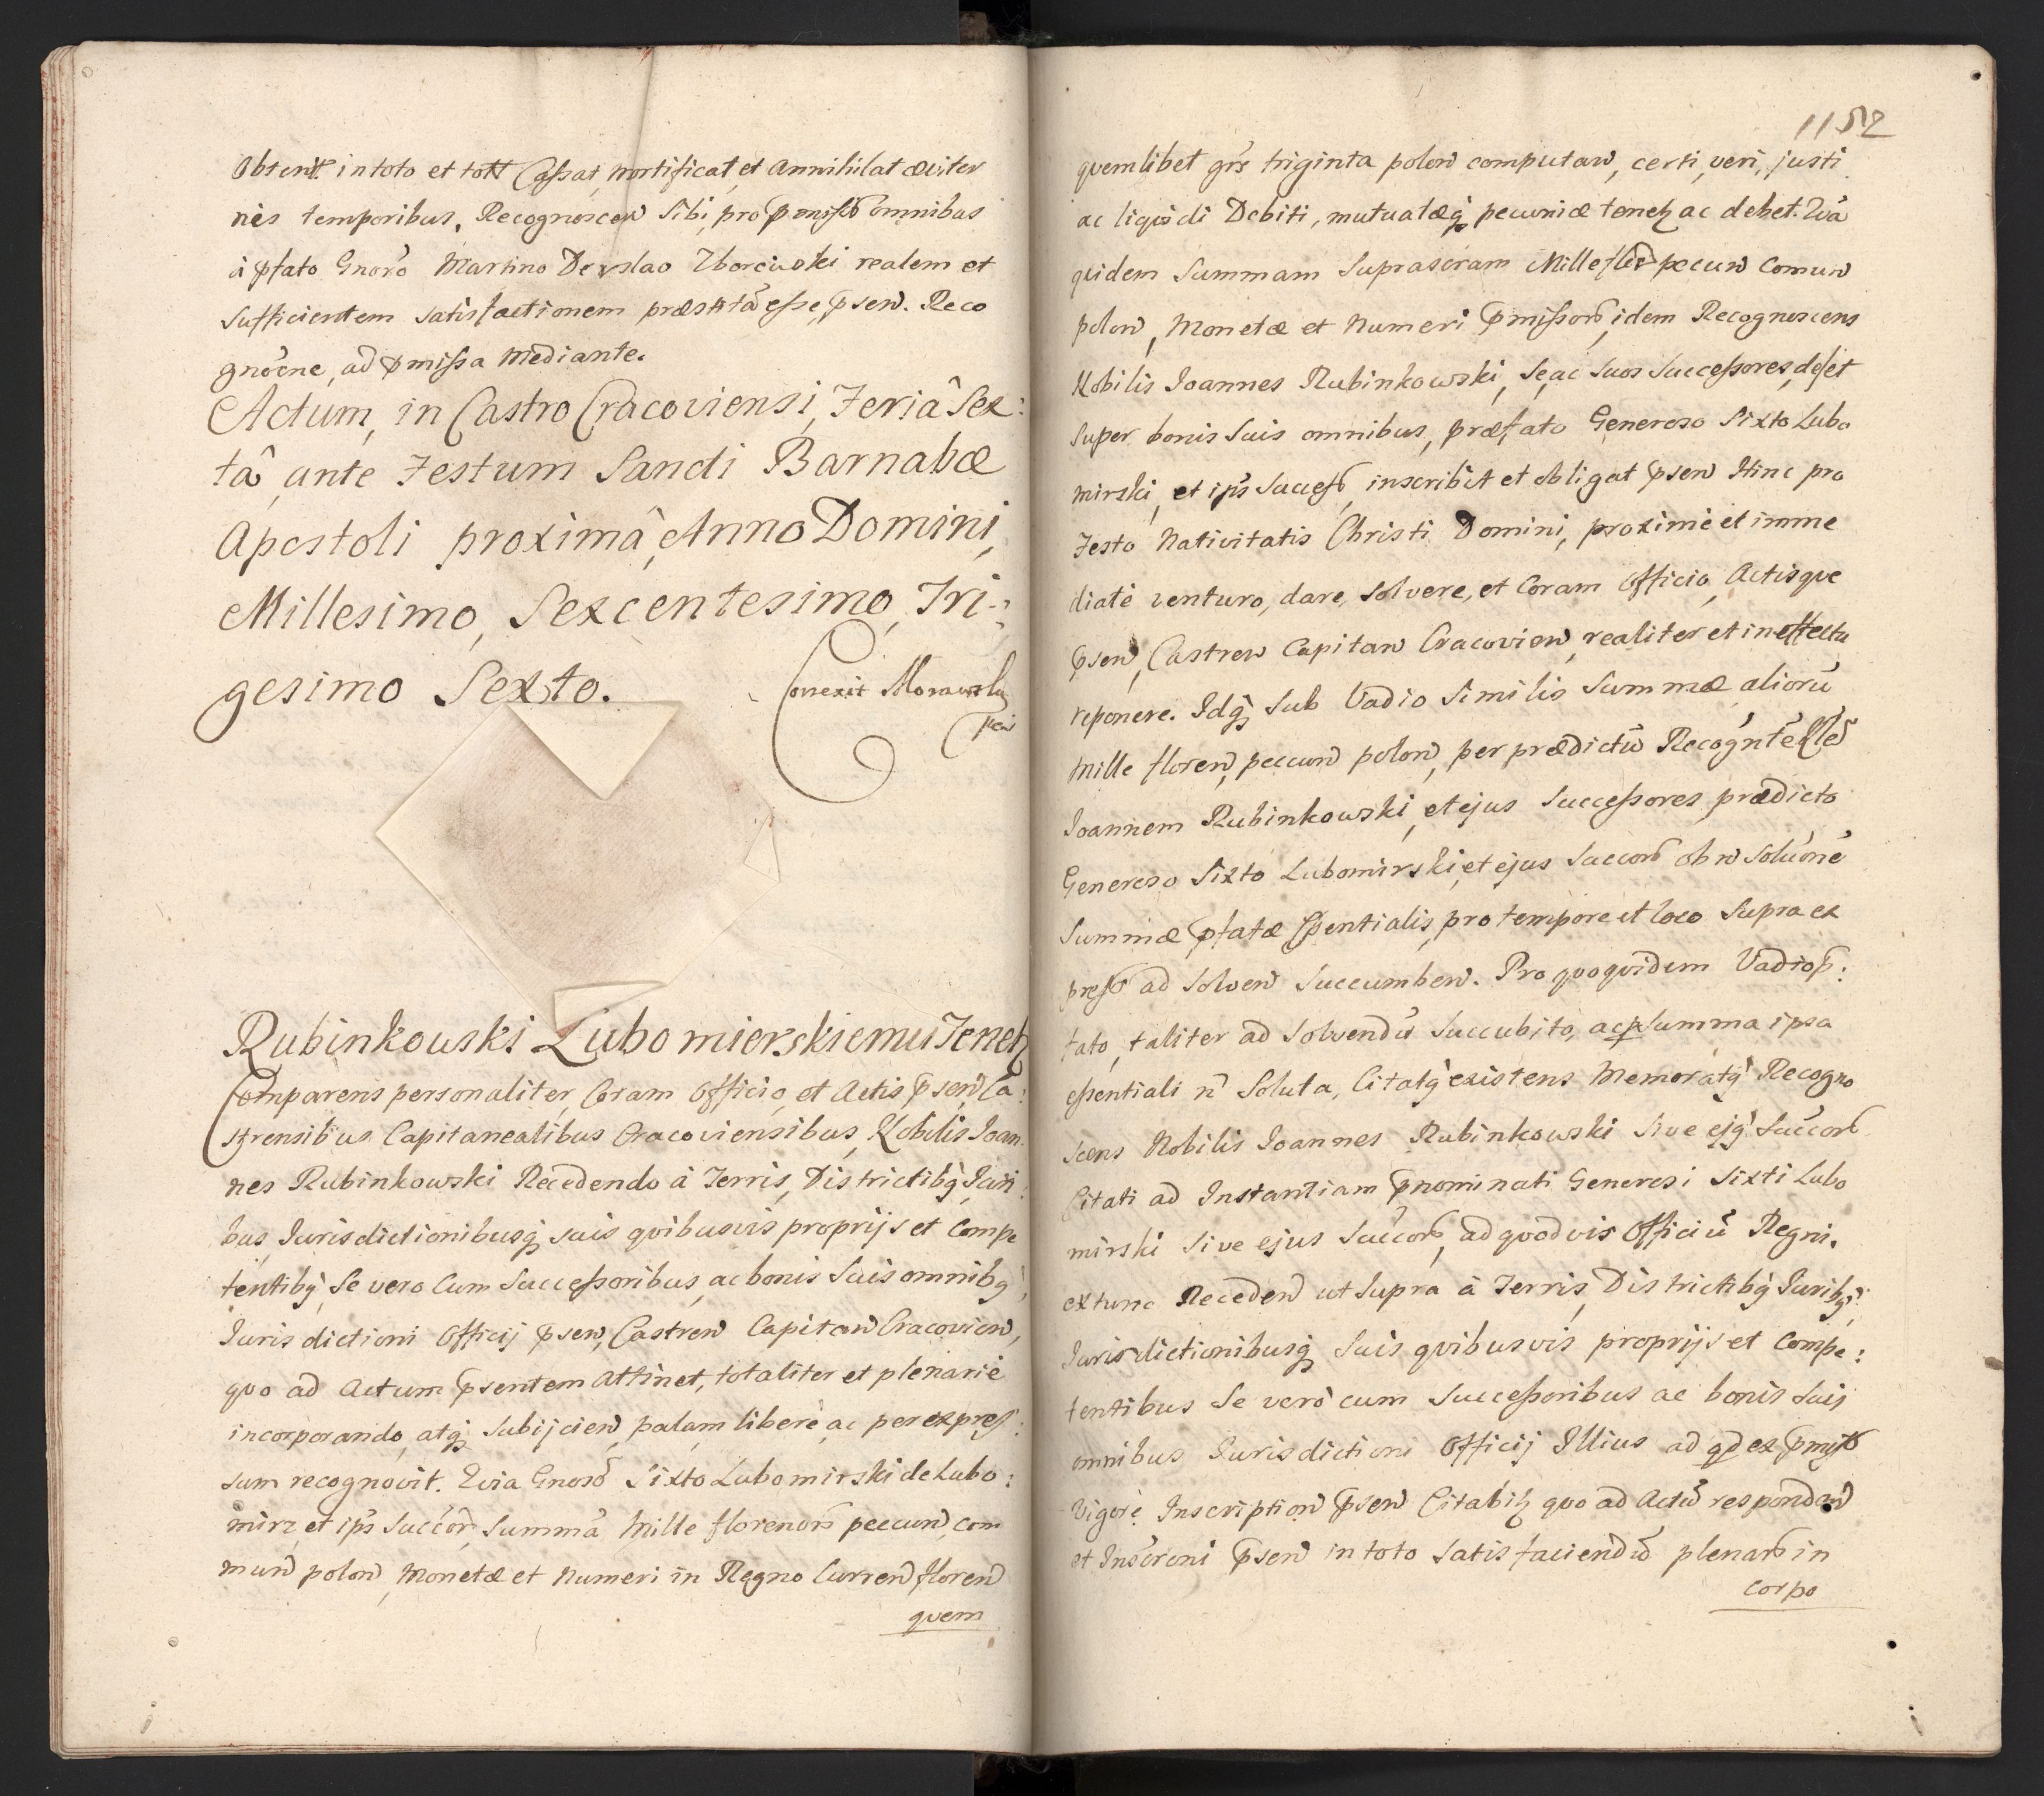 Obtent in toto et tott Cassat, mortificat, et Annihilat æviter
nis temporibus, Recognoscen Sibi, pro pmissis omnibus
à pfato Gnoso Martino Derslao Zborowski realem et
Sufficientem satisfactionem præstitã esse, psen. Reco
gnõcne, ad pmissa Mediante.
Actum, in Castro Cracoviensi, Feriâ Sex:
tâ ante Festum Sancti Barnabæ
Apostoli proximâ, Anno Domini,
Millesimo, Sexcentesimo, Tri-
gesimo Sexto.
Correxit Morawski
Rubinkouski Lubomierskiemu Tenetz
Comparens personaliter, Coram Officio, et Actis psen Ca:
strensibus Capitanealibus Cracoviensibus, Nobilis Joan
nes Rubinkowski Recedendo à Terris, Districtibq Juri:
bus Jurisdictionibusq suis qvibusvis proprijs et Compe
tentibq, Se vero Cum Successoribus, ac bonis Suis omnibq,
Juris dictioni Officij psen, Castren Capitan Cracovien,
qvo ad Actum psentem attinet, totaliter et plenarie
incorporando, atq Subijcien, palam libere ac per expres:
sum recognovit. Qvia Gnoso Sixto Lubomirski de Lubo:
mirz et ips Succor Summã Mille florenor peccun, com
mun polon, Monetæ et Numeri in Regno Curren floren
qvem
1152
qvemlibet grs triginta polon computan, certi, veri, justi
ac liqvidi Debiti, mutuatæq pecuniæ tenetz ac debet. Qvã
qvidem Summam Suprascram Mille flor pecun Comun
polon, Monetæ et Numeri pmissor, idem Recognoscens
Nobilis Joannes Rubinkowski, Se, ac Suos Successores, de et
Super bonis Suis omnibus, præfato Generoso Sixto Lubo
mirski, et ips Success, inscribit et obligat psen Hinc pro
Festo Nativitatis Christi Domini, proximè et imme
diatè venturo, dare, solvere, et Coram Officio, Actisqve
psen, Castren Capitan Cracovien, realiter et in effectu
reponere. Idq Sub Vadio Similis Summæ aliorũ
Mille floren, peccun polon, per prædictũ Recogntẽ
Joannem Rubinkowski, et ejus Successores prædicto
Generoso Sixto Lubomirski, et ejus Succor ob n Soluõnẽ
Summæ pfatæ Essentialis, pro tempore et loco Supra ex
press ad Solven Succumben. Pro qvoqvidem Vadio p:
tato, taliter ad Solvendũ Succubito, ac p Summa ipsa
essentiali ñ Soluta, Citatq existens Memoratq Recogno
scens Nobilis Joannes Rubinkowski Sive ejq Succor
Citati ad Instantiam pnominati Generosi Sixti Lubo
mirski Sive ejus Succor, ad qvodvis Officiũ Regni.
extunc Receden ut Supra à Terris, Districtibq Juribq,
Jurisdictionibusq Suis qvibusvis proprijs et Compe:
tentibus Se verò cum Successoribus ac bonis Suis
omnibus Jurisdictioni Officij Illius ad qd ex pmiss
Vigore Inscription psen Citabitz qvo ad Actũ responden
et Inscrõni psen in toto Satisfaciendũ plenar in
corpo